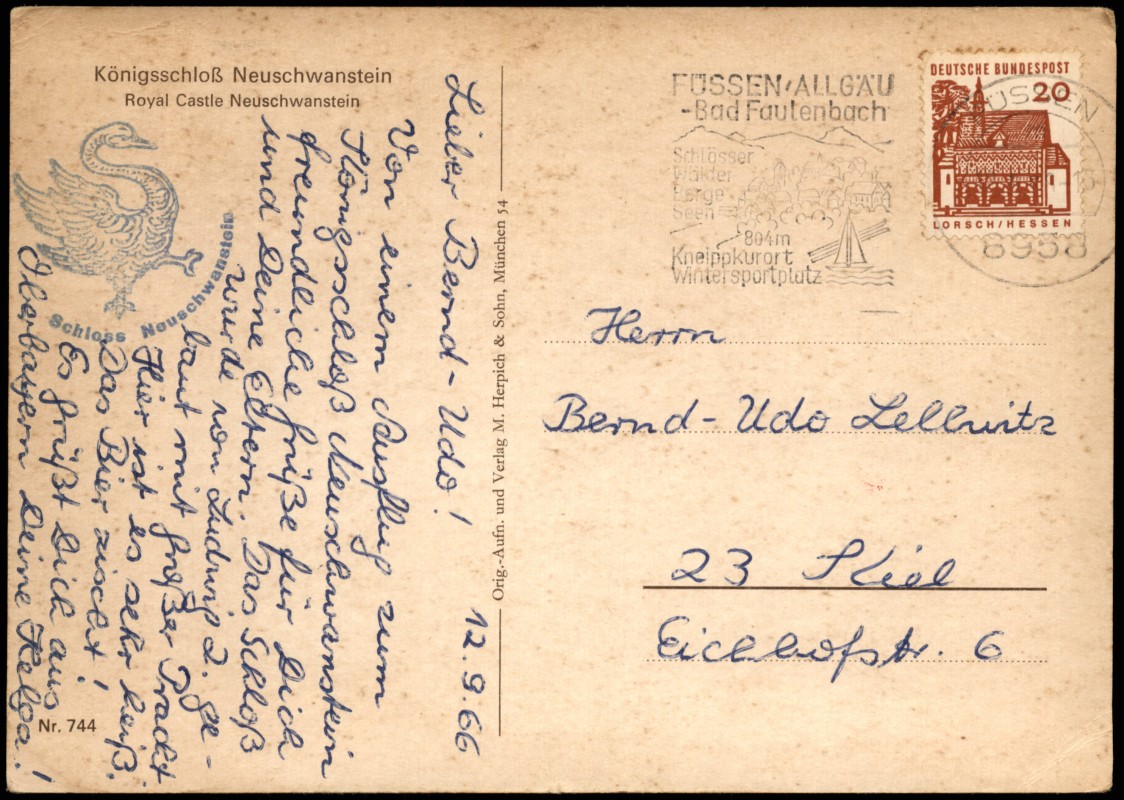 Königsschloß Neuschwanstein
Royal Castle Neuschwanstein
Schloss Neuschwanstein
12.9.66
Lieber Bernd-Udo!
Von einem Ausflug zum
Königsschloß Neuschwanstein
freundliche Grüße für Dich
und Deine Eltern. Das Schloß
wurde von Ludwig 2. ge-
baut mit großer Pracht
Hier ist es sehr heiß.
Das Bier zischt!
Es grüßt Dich aus
Oberbayern Deine Helga!
Nr. 744
Orig.-Aufn. und Verlag M. Herpich & Sohn, München 54
FÜSSEN/ALLGÄU
-Bad Faulenbach
Schlösser
Wälder
Berge
Seen
804m
Kneippkurort
Wintersportplatz
DEUTSCHE BUNDESPOST
20
LORSCH/HESSEN
FÜSSEN
8958
Herrn
Bernd-Udo Lellwitz
23 Kiel
Eichhofstr. 6